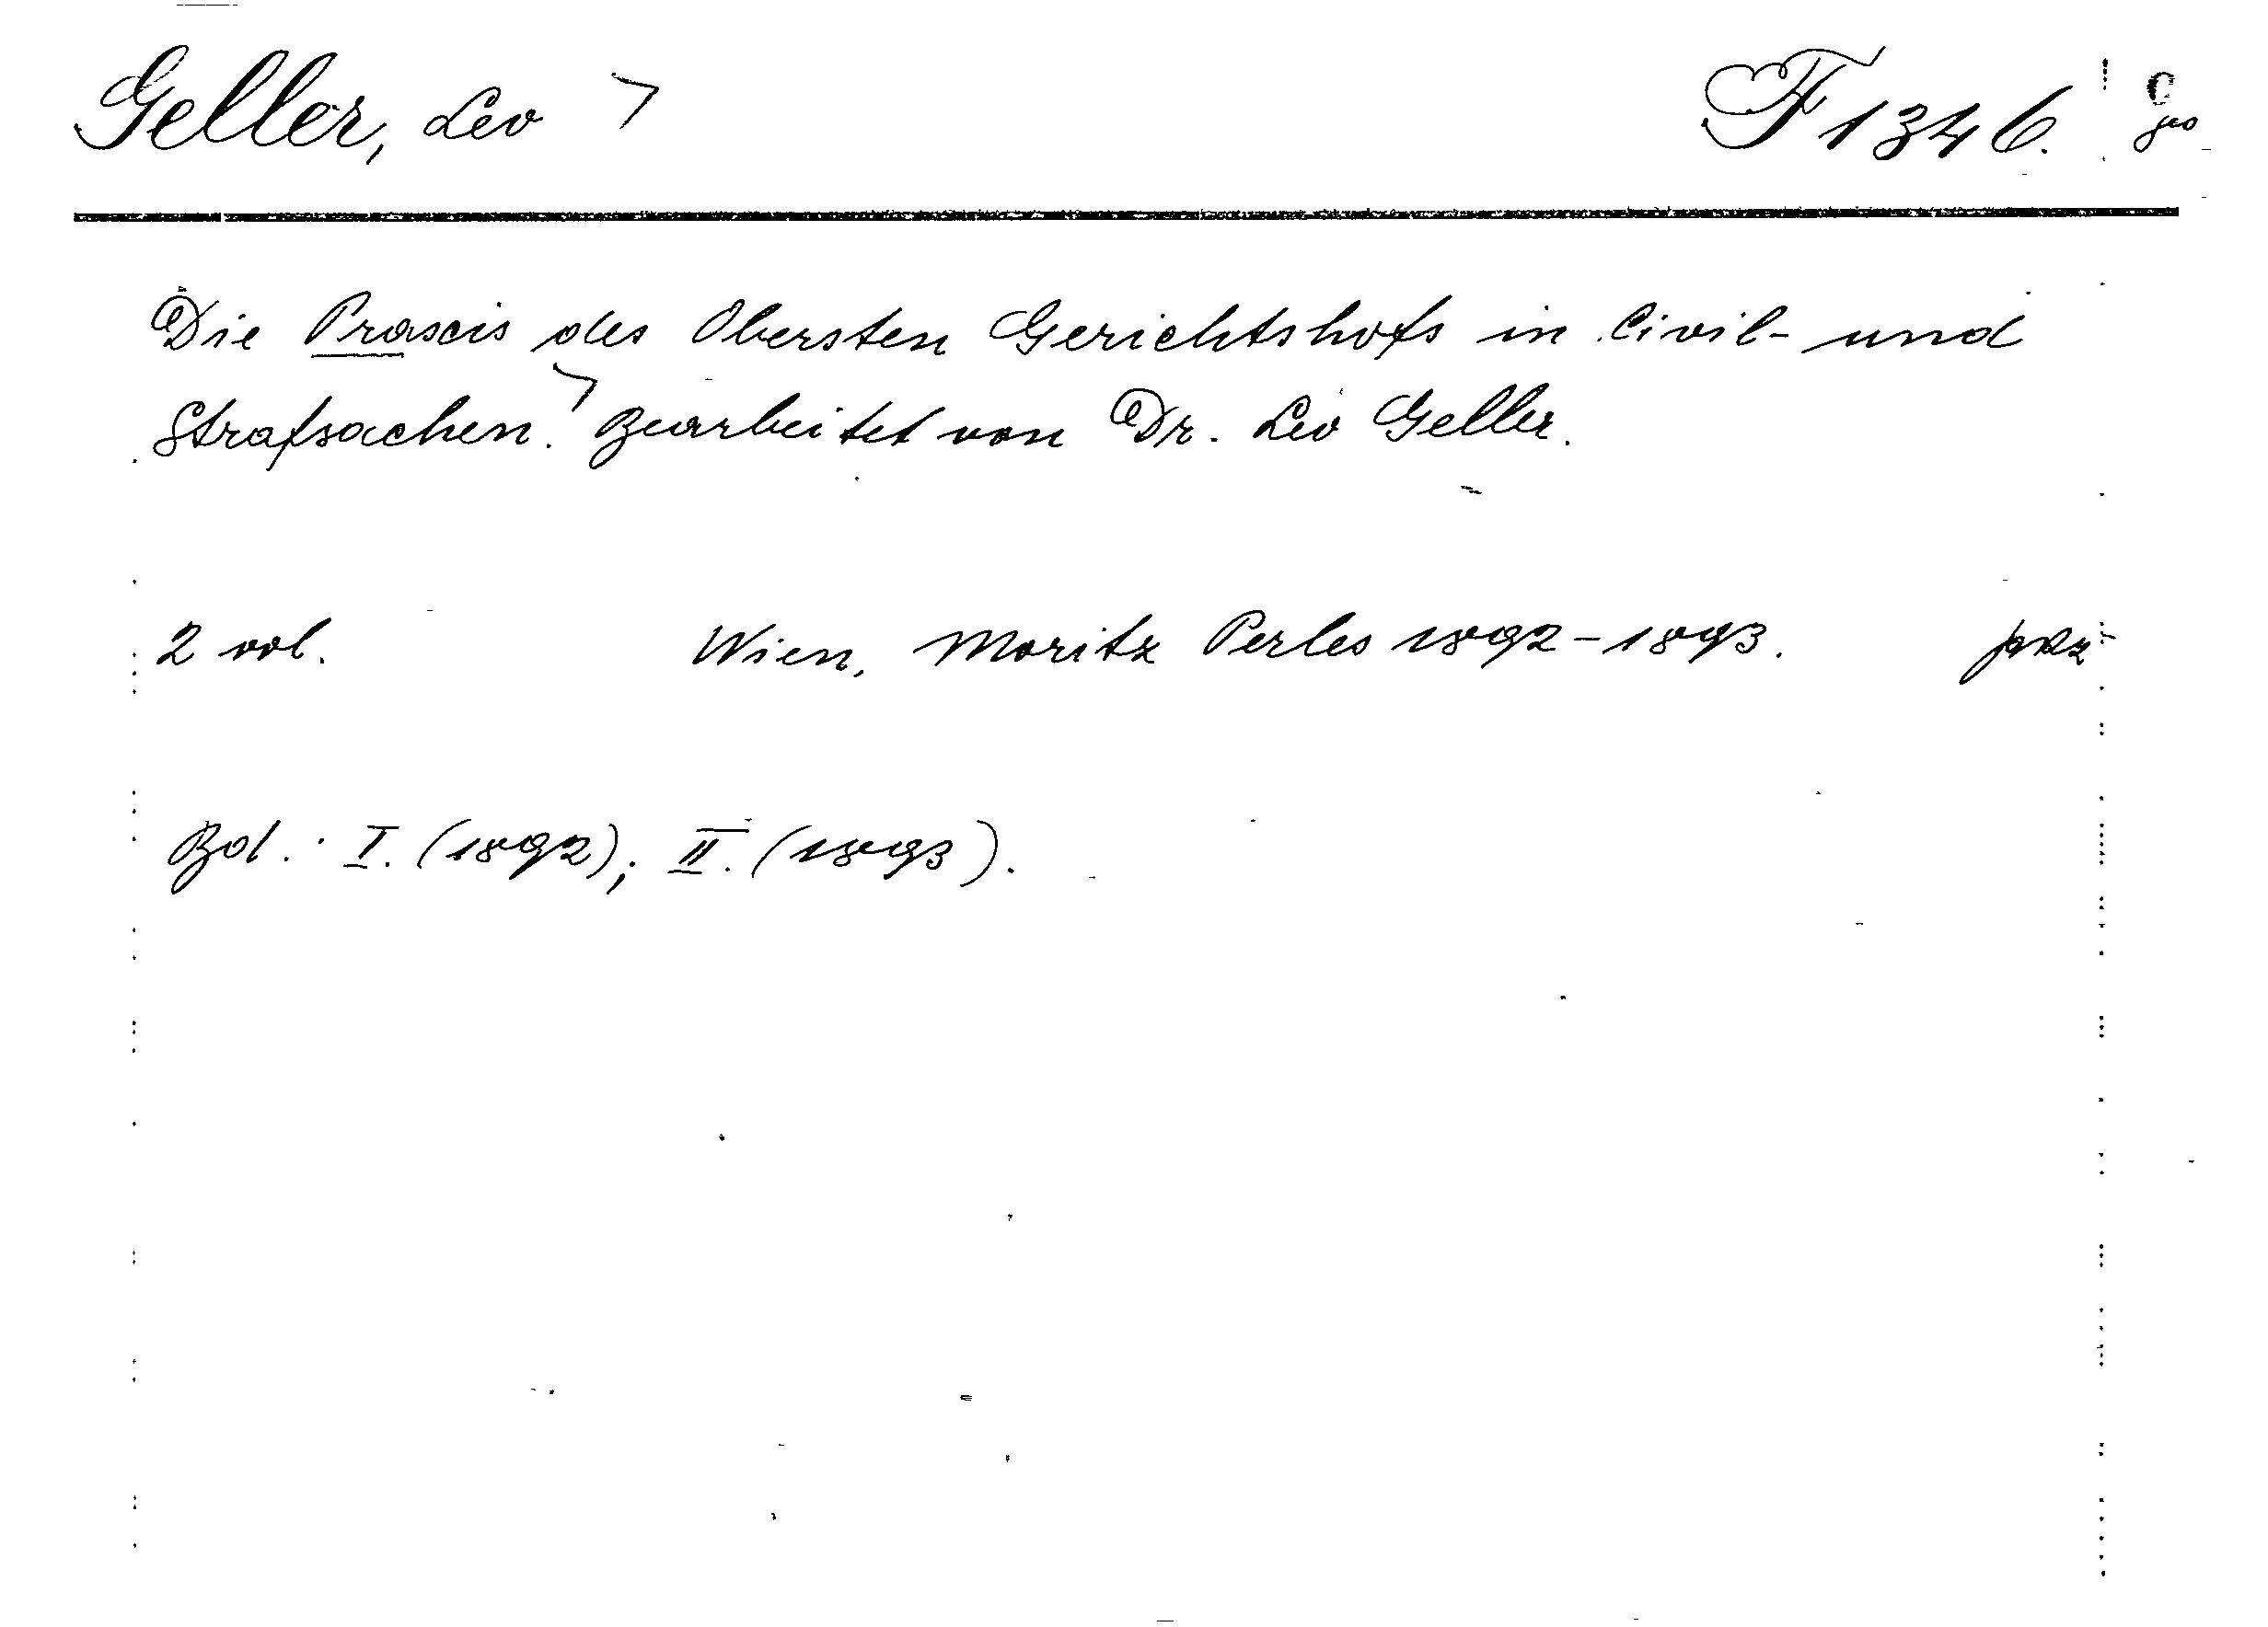 Geller, Leo F 1346.
Die Praxis des Obersten Gerichtshofs in Civil- und
Strafsachen. Bearbeitet von Dr. Leo Geller.
2 vol. Wien, Moritz Perles 1892-1893.
Bd.: I. (1892); II. (1893).